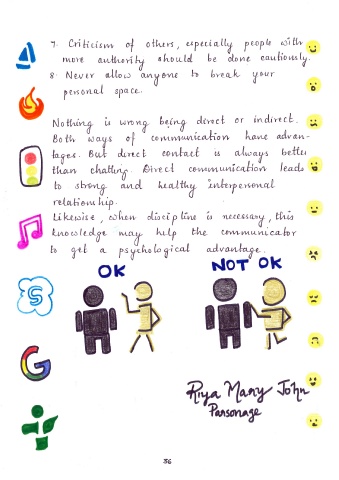 7. Criticism of others, especially people with
more authority should be done cautiously.
8. Never allow anyone to break your
personal space.
Nothing is wrong being direct or indirect.
Both ways of communication have advan-
tages. But direct contact is always better
than chatting. Direct communication leads
to strong and healthy interpersonal
relationship.
Likewise, when discipline is necessary, this
knowledge may help the communicator
to get a psychological advantage.
OK
NOT OK
S
G
Riya Mary John
Parsonage
36